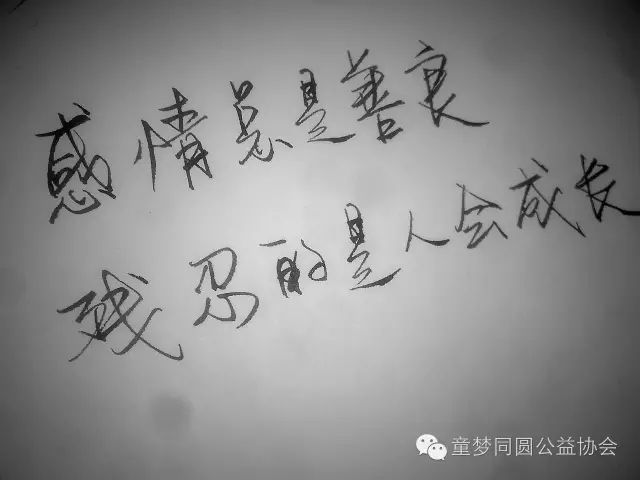 感情总是善良
残忍的是人会成长
童梦同圆公益协会